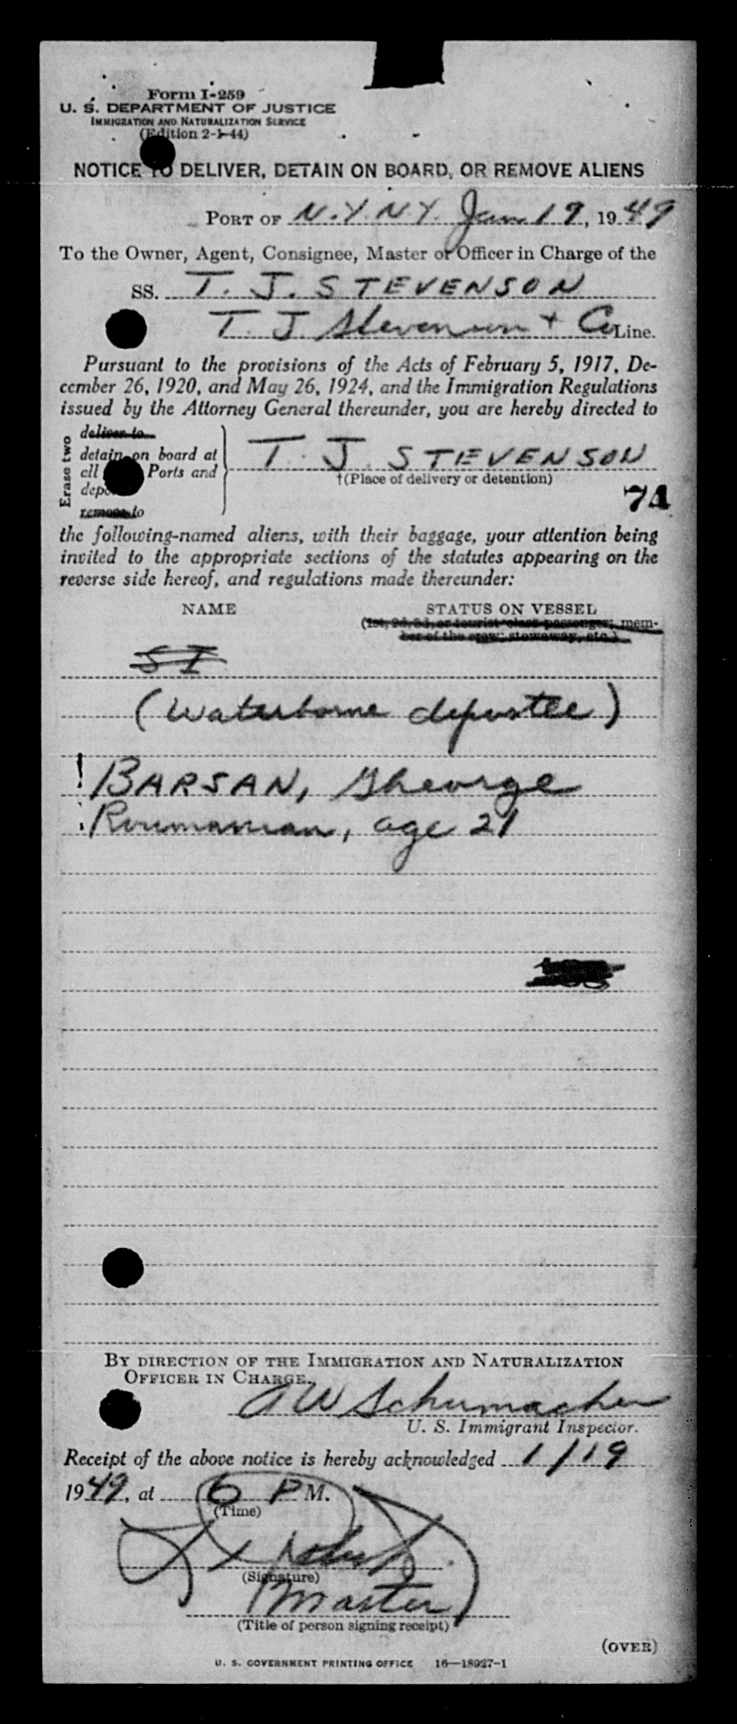 Form I-259
U. S. DEPARTMENT OF JUSTICE
IMMIGRATION AND NATURALIZATION SERVICE
(Edition 2-1-44)
NOTICE TO DELIVER, DETAIN ON BOARD, OR REMOVE ALIENS
PORT OF N.Y. N.Y. Jan 19, 1949
To the Owner, Agent, Consignee, Master or Officer in Charge of the
SS. T. J. STEVENSON
T. J. Stevenson + Co Line.
Pursuant to the provisions of the Acts of February 5, 1917, De-
cember 26, 1920, and May 26, 1924, and the Immigration Regulations
issued by the Attorney General thereunder, you are hereby directed to
Erase two
deliver to
detain on board at
all Ports and
remove to
T. J. STEVENSON
†(Place of delivery or detention)
74
the following-named aliens, with their baggage, your attention being
invited to the appropriate sections of the statutes appearing on the
reverse side hereof, and regulations made thereunder:
NAME STATUS ON VESSEL
(1st, 2d, 3d, or tourist class passenger, mem-
ber of the crew, stowaway, etc.)
SI
(Waterborne deportee)
BARSAN, Gheorge
Roumanian, age 21
BY DIRECTION OF THE IMMIGRATION AND NATURALIZATION
OFFICER IN CHARGE.
A W Schumacher
U. S. Immigrant Inspector.
Receipt of the above notice is hereby acknowledged 1/19
1949, at 6 P M.
(Time)
x
(Signature)
Master
(Title of person signing receipt)
(OVER)
U. S. GOVERNMENT PRINTING OFFICE 16—18927-1